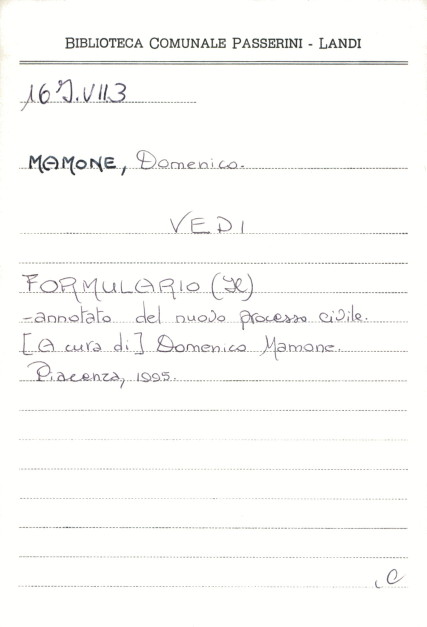 BIBLIOTECA COMUNALE PASSERINI - LANDI
16 J.VII.3
MAMONE, Domenico.
VEDI
FORMULARIO (Il)
-annotato del nuovo processo civile.
[A cura di] Domenico Mamone.
Piacenza, 1995.
C